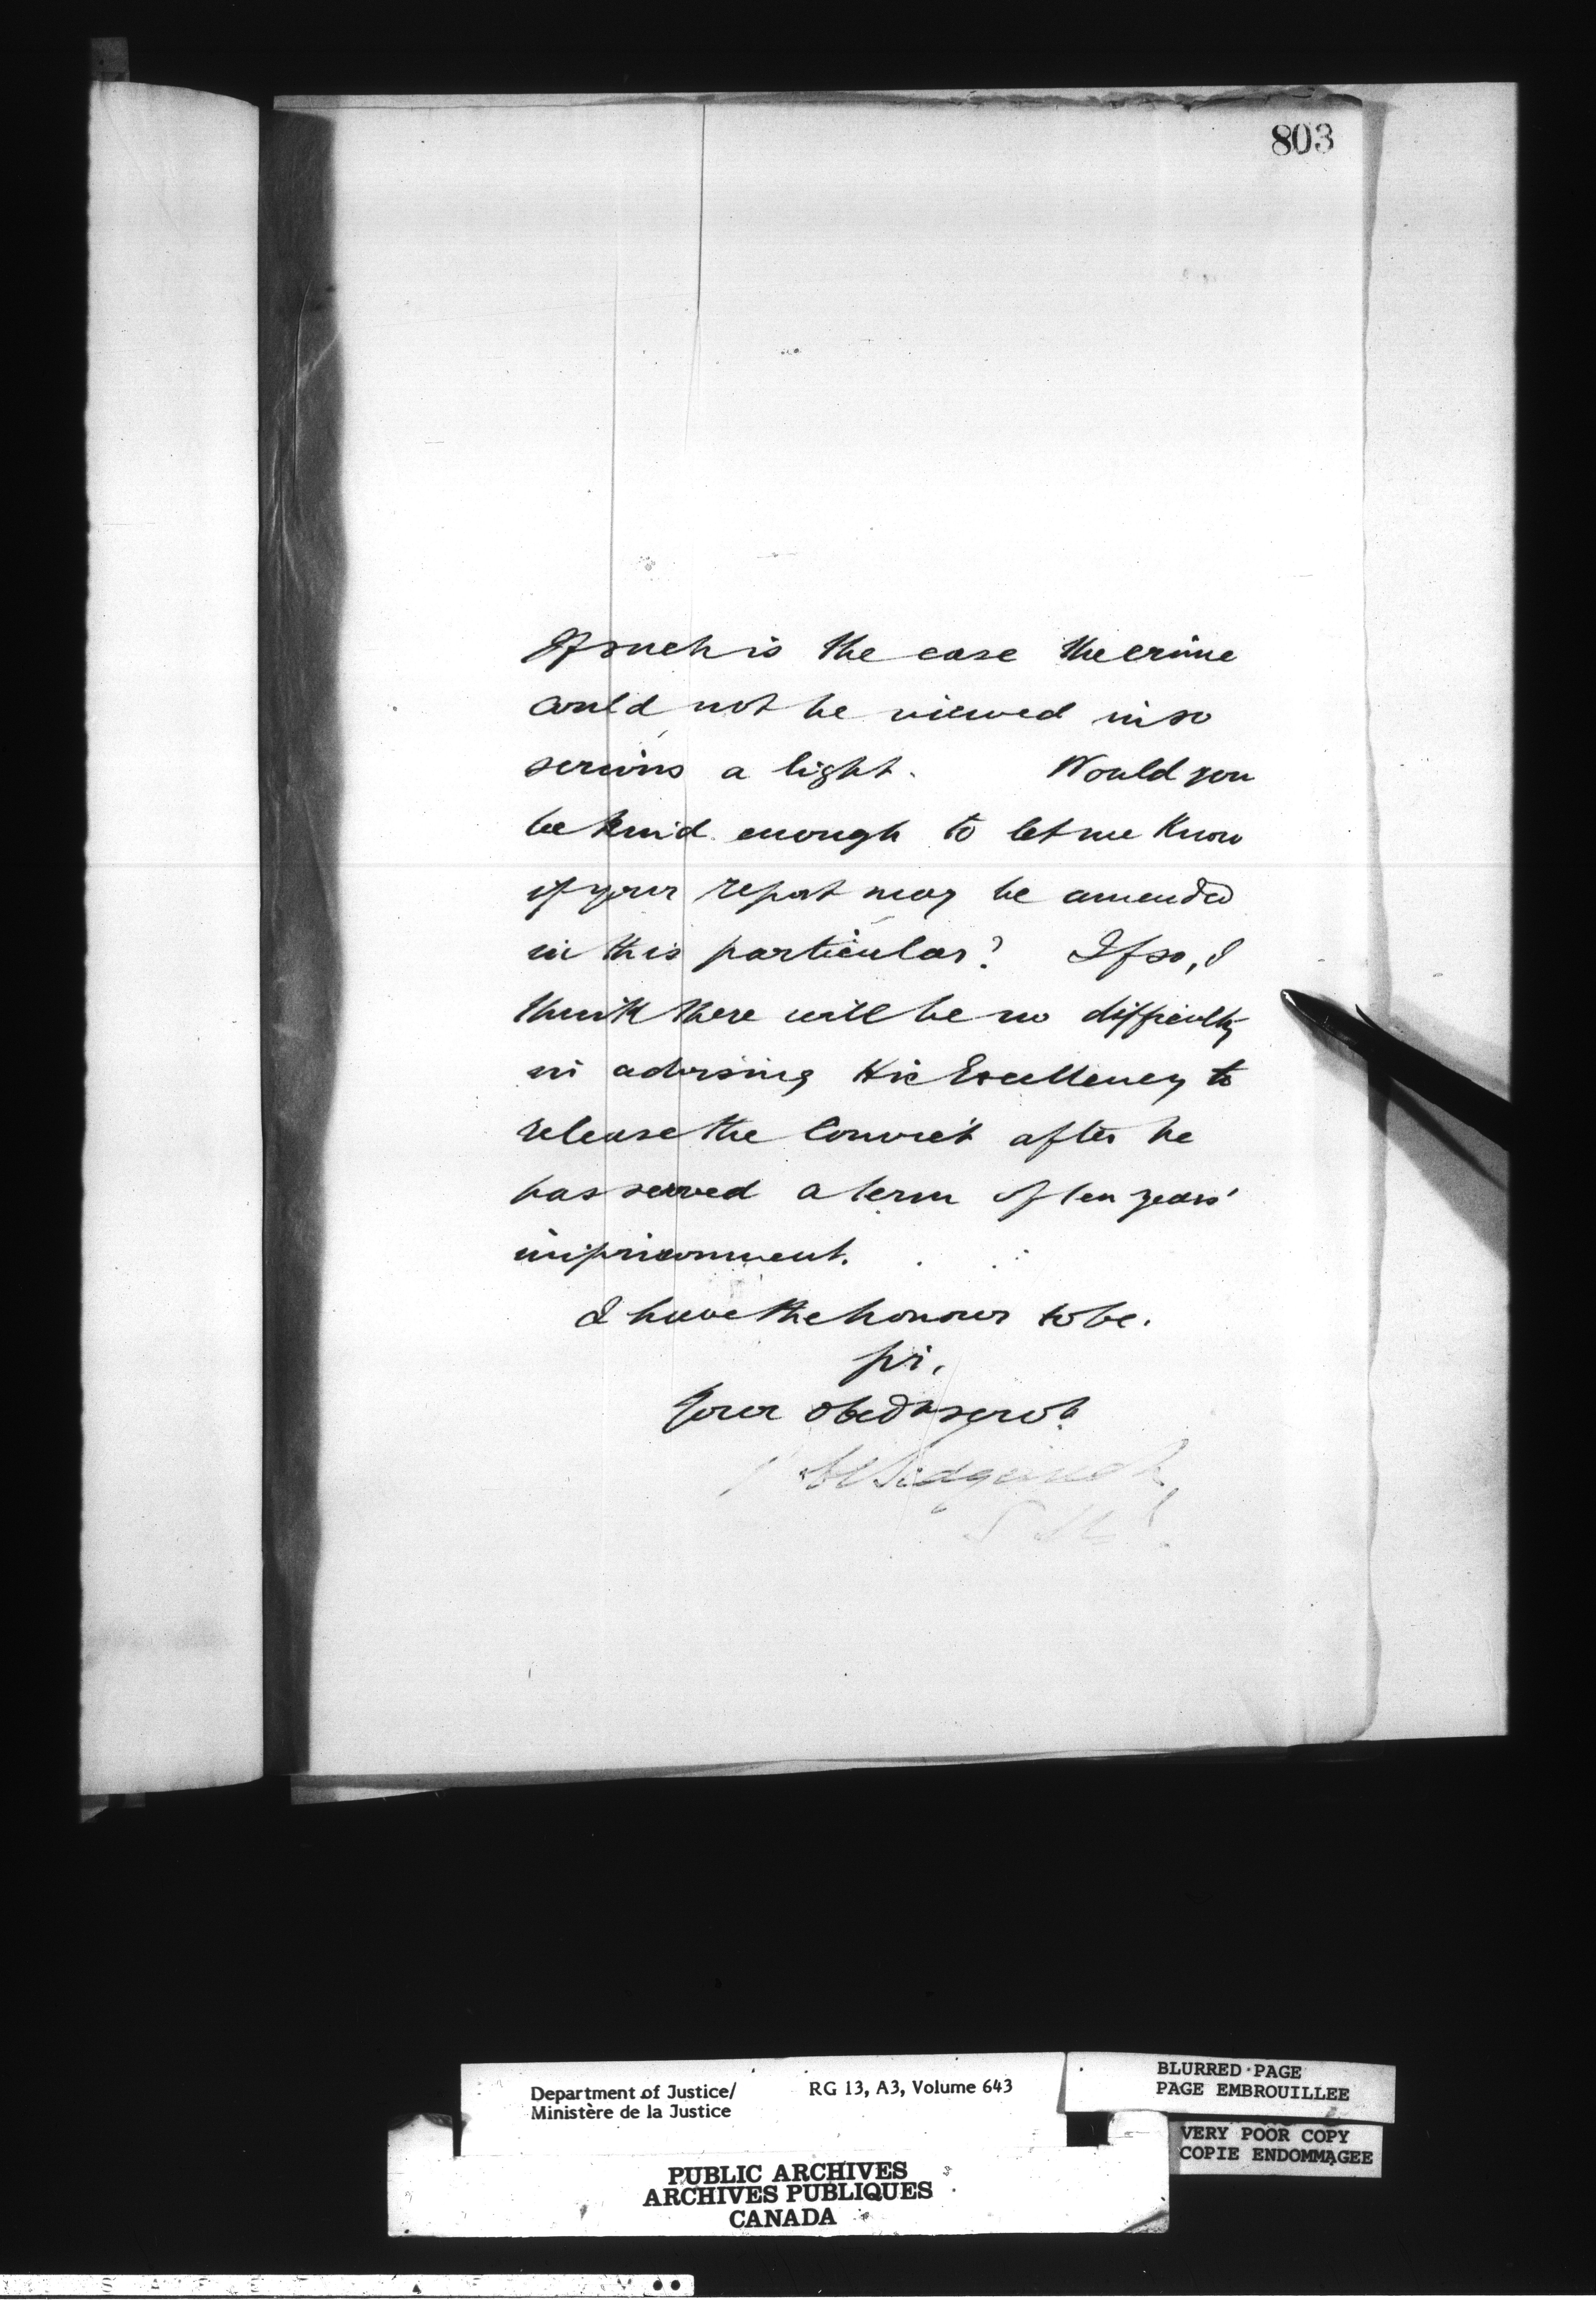 803
If such is the case the crime
could not be viewed in so
serious a light. Would you
be kind enough to let me know
if your report may be amended
in this particular? If so, I
think there will be no difficulty
in advising His Excellency to
release the Convict after he
has served a term of ten years'
imprisonment.
I have the honour to be.
Sir,
Your obedt servt
Sedgewick,
Department of Justice/
Ministère de la Justice
RG 13, A3, Volume 643
BLURRED PAGE
PAGE EMBROUILLEE
VERY POOR COPY
COPIE ENDOMMAGEE
PUBLIC ARCHIVES
ARCHIVES PUBLIQUES
CANADA